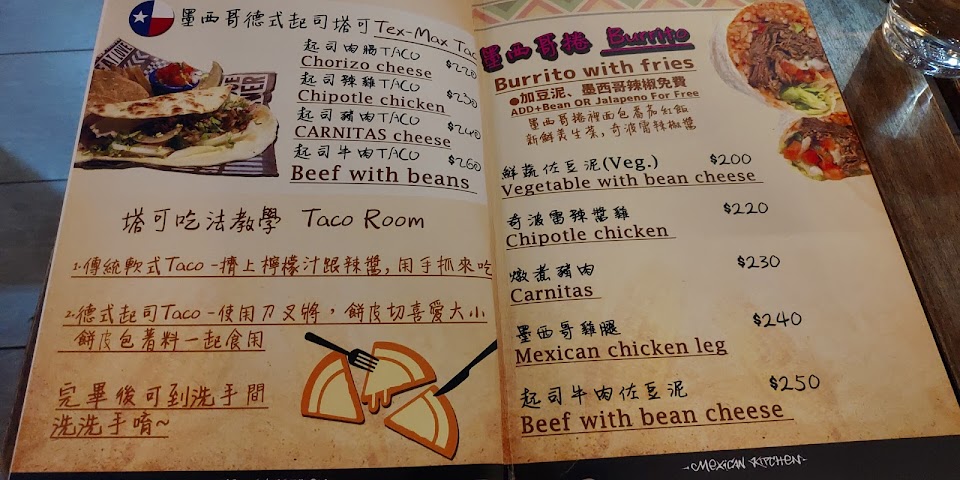 墨西哥德式起司塔可Tex-Max Tac
起司肉腸TACO $220
Chorizo cheese
起司辣雞TACO $230
Chipotle chicken
起司豬肉TACO $240
CARNITAS cheese
起司牛肉TACO $260
Beef with beans
塔可吃法教學 Taco Room
1.傳統軟式Taco-擠上檸檬汁跟辣醬,用手抓來吃
2.德式起司Taco-使用刀叉將,餅皮切喜愛大小
餅皮包著料一起食用
完畢後可到洗手間
洗洗手唷~
墨西哥捲 Burrito
Burrito with fries
●加豆泥、墨西哥辣椒免費
ADD+Bean OR Jalapeno For Free
墨西哥捲裡面包番茄紅飯
新鮮美生菜,奇波雷辣椒醬
鮮蔬佐豆泥(Veg.) $200
Vegetable with bean cheese
奇波雷辣醬雞 $220
Chipotle chicken
燉煮豬肉 $230
Carnitas
墨西哥雞腿 $240
Mexican chicken leg
起司牛肉佐豆泥 $250
Beef with bean cheese
-MEXICAN KITCHEN-